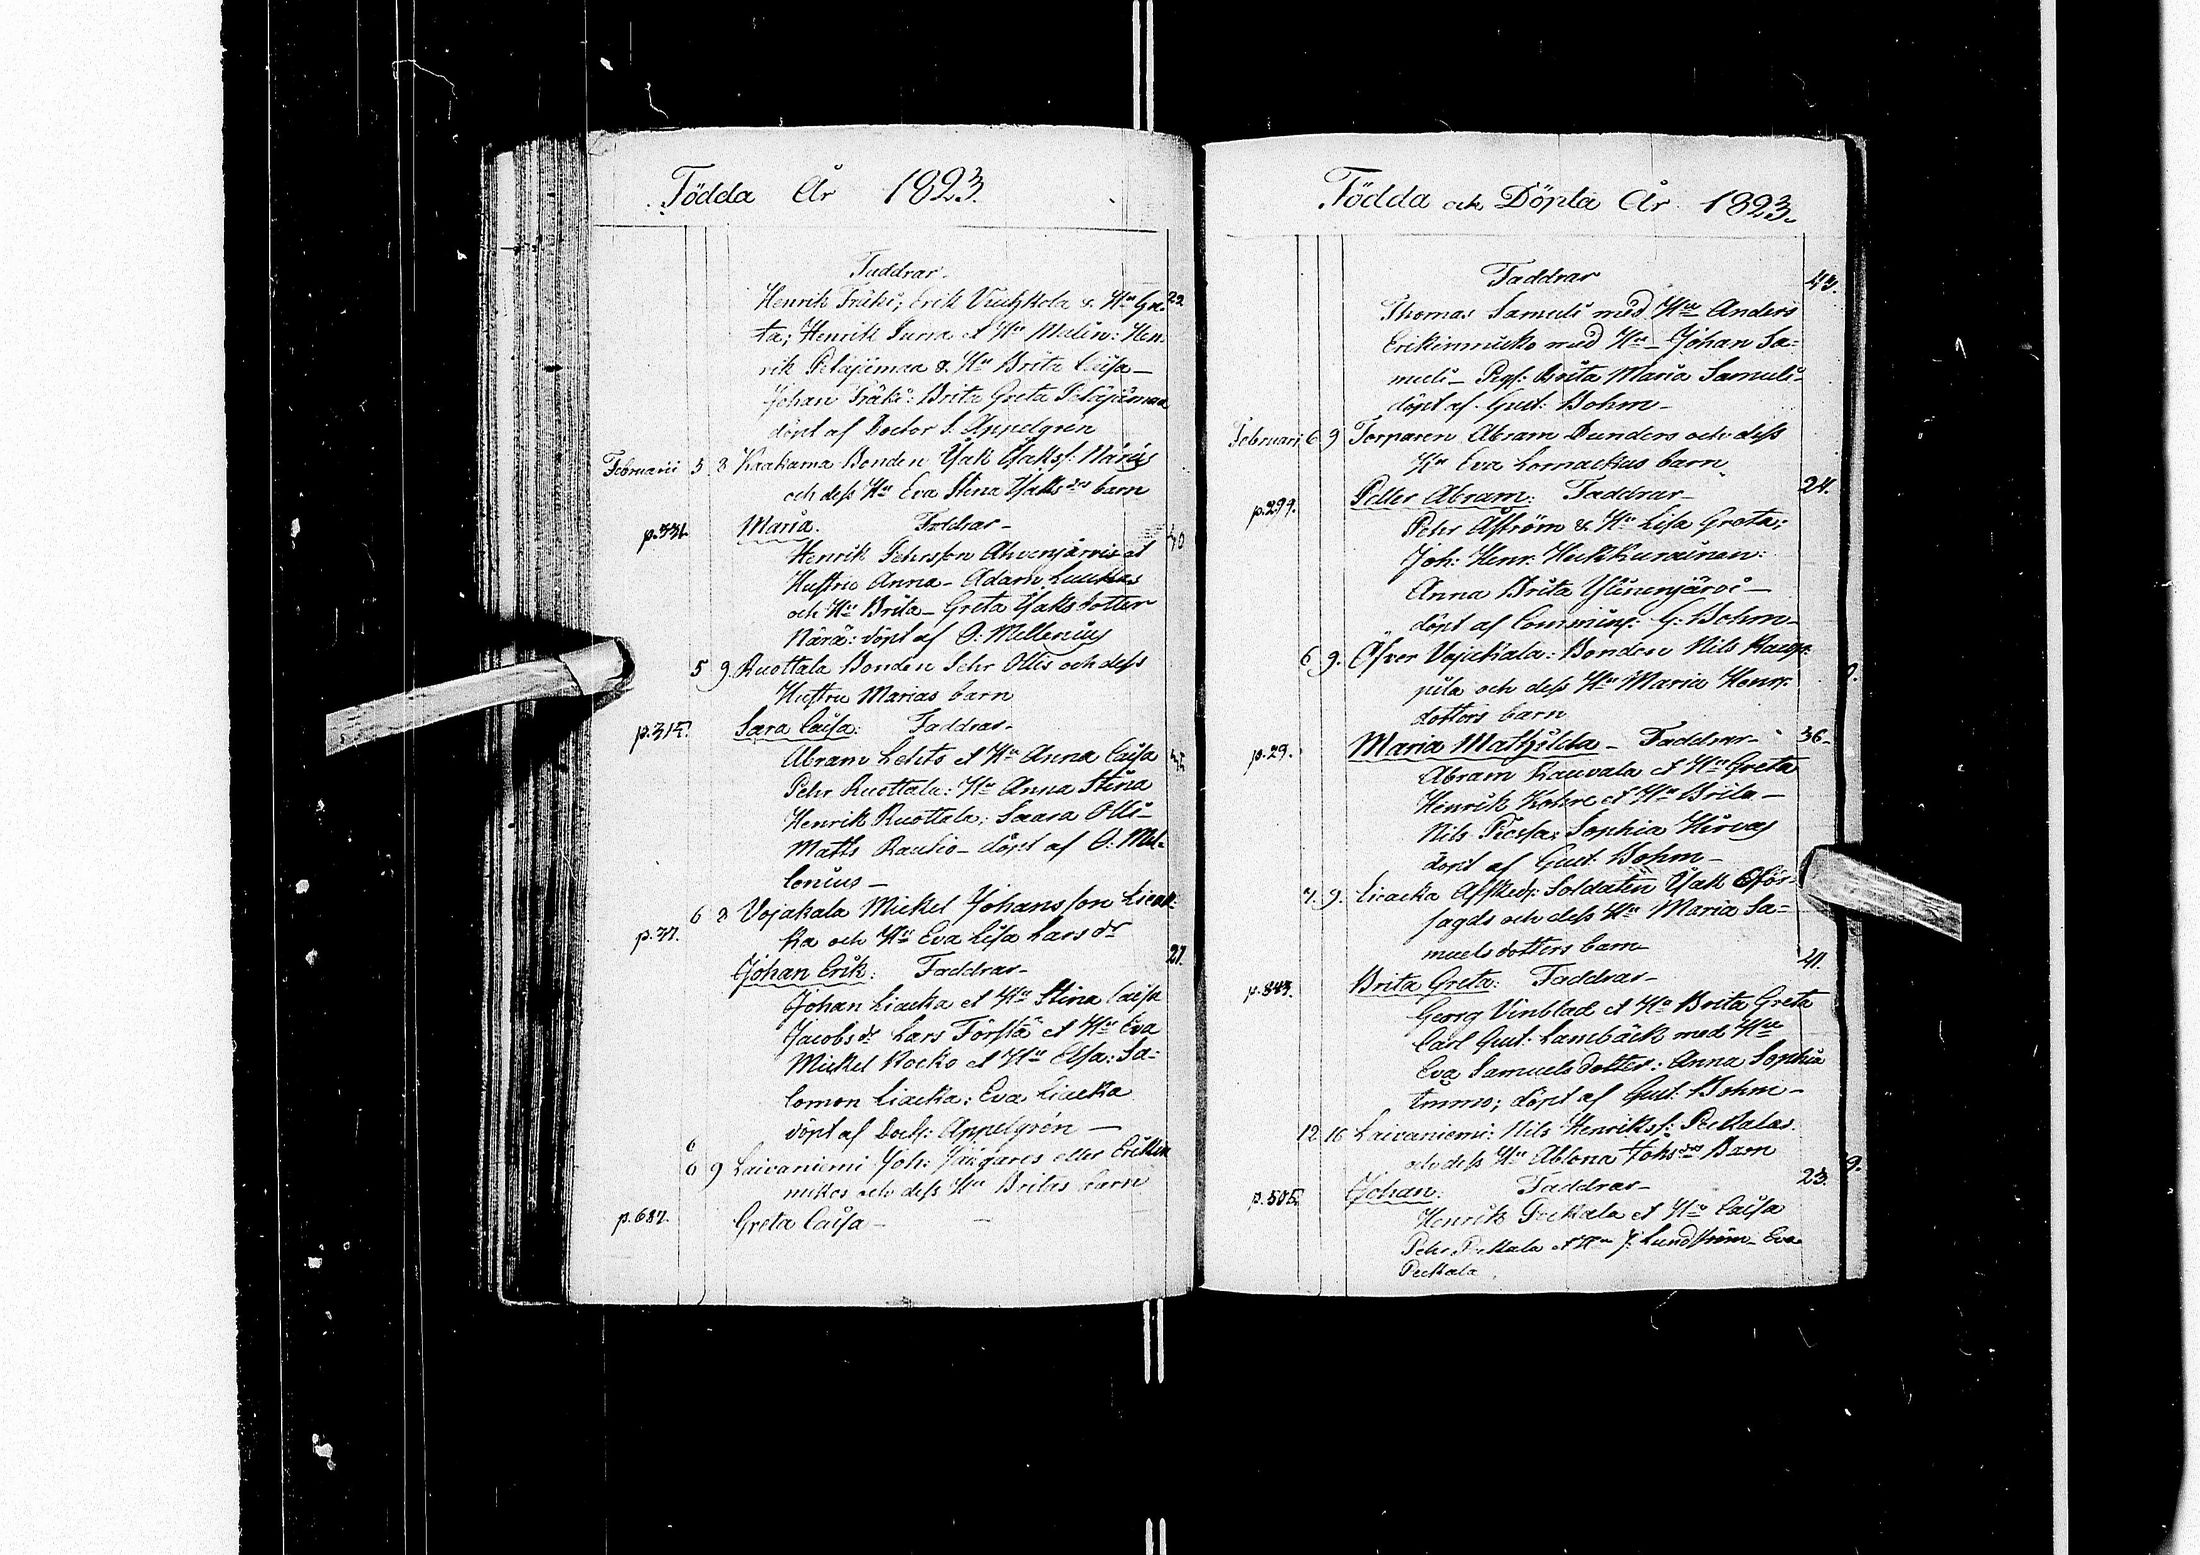 Födda År 1823.
Faddrar.
Henrik Präki; Erik & Hu Gre- 29.
ta; Henrik Juna et Hu Malin: Hen-
rik Pelajämaa & Hu Brita Caisa—
Johan Präki: Brita Greta Pelajämaa
döpt af Doctor J. Appelgren
Februarii 5 8 Kaakama Bonden Isak Isakss: Näräs
och dess Hu Eva Stina Isaksdrs barn
p.331. Maria. Faddrar— 40
Henrik Pehrsson Ahvenjärvi et
Hustru Anna— Adam Luukas
och Hu Brita— Greta Isaksdotter
Närä: döpt af O: Mellenius
5 9. Ruottala Bonden Pehr Ollis och dess
Hustru Marias barn
p.315. Sara Caisa: Faddrar—
Abram Lehto et Hu Anna Caisa
Pehr Ruottala: Hu Anna Stina
Henrik Ruottala; Saara Olli—
Matts Rautio— döpt af O: Mel-
lenius—
6 8 Vojakala Mickel Johansson Lieak-
p.37. ka och Hu Eva Lisa Larsdr
Johan Erik: Faddrar— 27.
Johan Liacka et Hu Stina Caisa
Jacobsdr Lars Förstä et Hu Eva
Mickel Rocko et Hu Elsa: Sa-
lomon Liacka: Eva Liacka
döpt af Doct: Appelgrén—
6
6 9 Laivaniemi Joh: eller Erikin
mikos och dess Hu Britas barn
p.687. Greta Caisa— —
Födda och Döpta År 1823.
Faddrar 43.
Thomas Samuli med Hu Anders
Erikinmicko med Hu— Johan Sa-
muli— Pigs: Brita Maria Samuli—
döpt af Gust: Bohm—
Februari 6 9 Torparen Abram Dunders och dess
Hu Eva Lomackus barn
p.299. Petter Abram: Faddrar— 24.
Pehr Åström & Hu Lisa Greta;
Joh: Henr: Heikkurainen:
Anna Brita Ylinenjärvi—
döpt af Comminist: G: Bohm—
6 9. Öfver Vojakala: Bonden Nils Kaup-
pila och dess Hu Maria Henr:
dotters barn
p.29. Maria Mathilda— Faddrar— 36—
Abram Rauvala et Hu Greta
Henrik Kohre et Hu Brita—
Nils Piossa; Sophia Hirvas
döpt af Gust. Bohm—
7. 9. Liacka Afsked: Soldaten Isak Oför-
sagds och dess Hu Maria Sa-
muelsdotters barn
p.843. Brita Greta: Faddrar— 41.
Georg Vinblad et Hu Brita Greta
Carl Gust: Lambäck med Hu
Eva Samuelsdotter: Anna Sophia
Immo; döpt af Gust: Bohm—
12 16 Laivaniemi: Nils Henrikss: Peckalas
och dess Hu Ablona Johsdrs Barn
p.505. Johan: Faddrar— 23.
Henrik Peckala et Hu Caisa
Pehr Peckala et Hu J: Lundström— Eva
Peckala